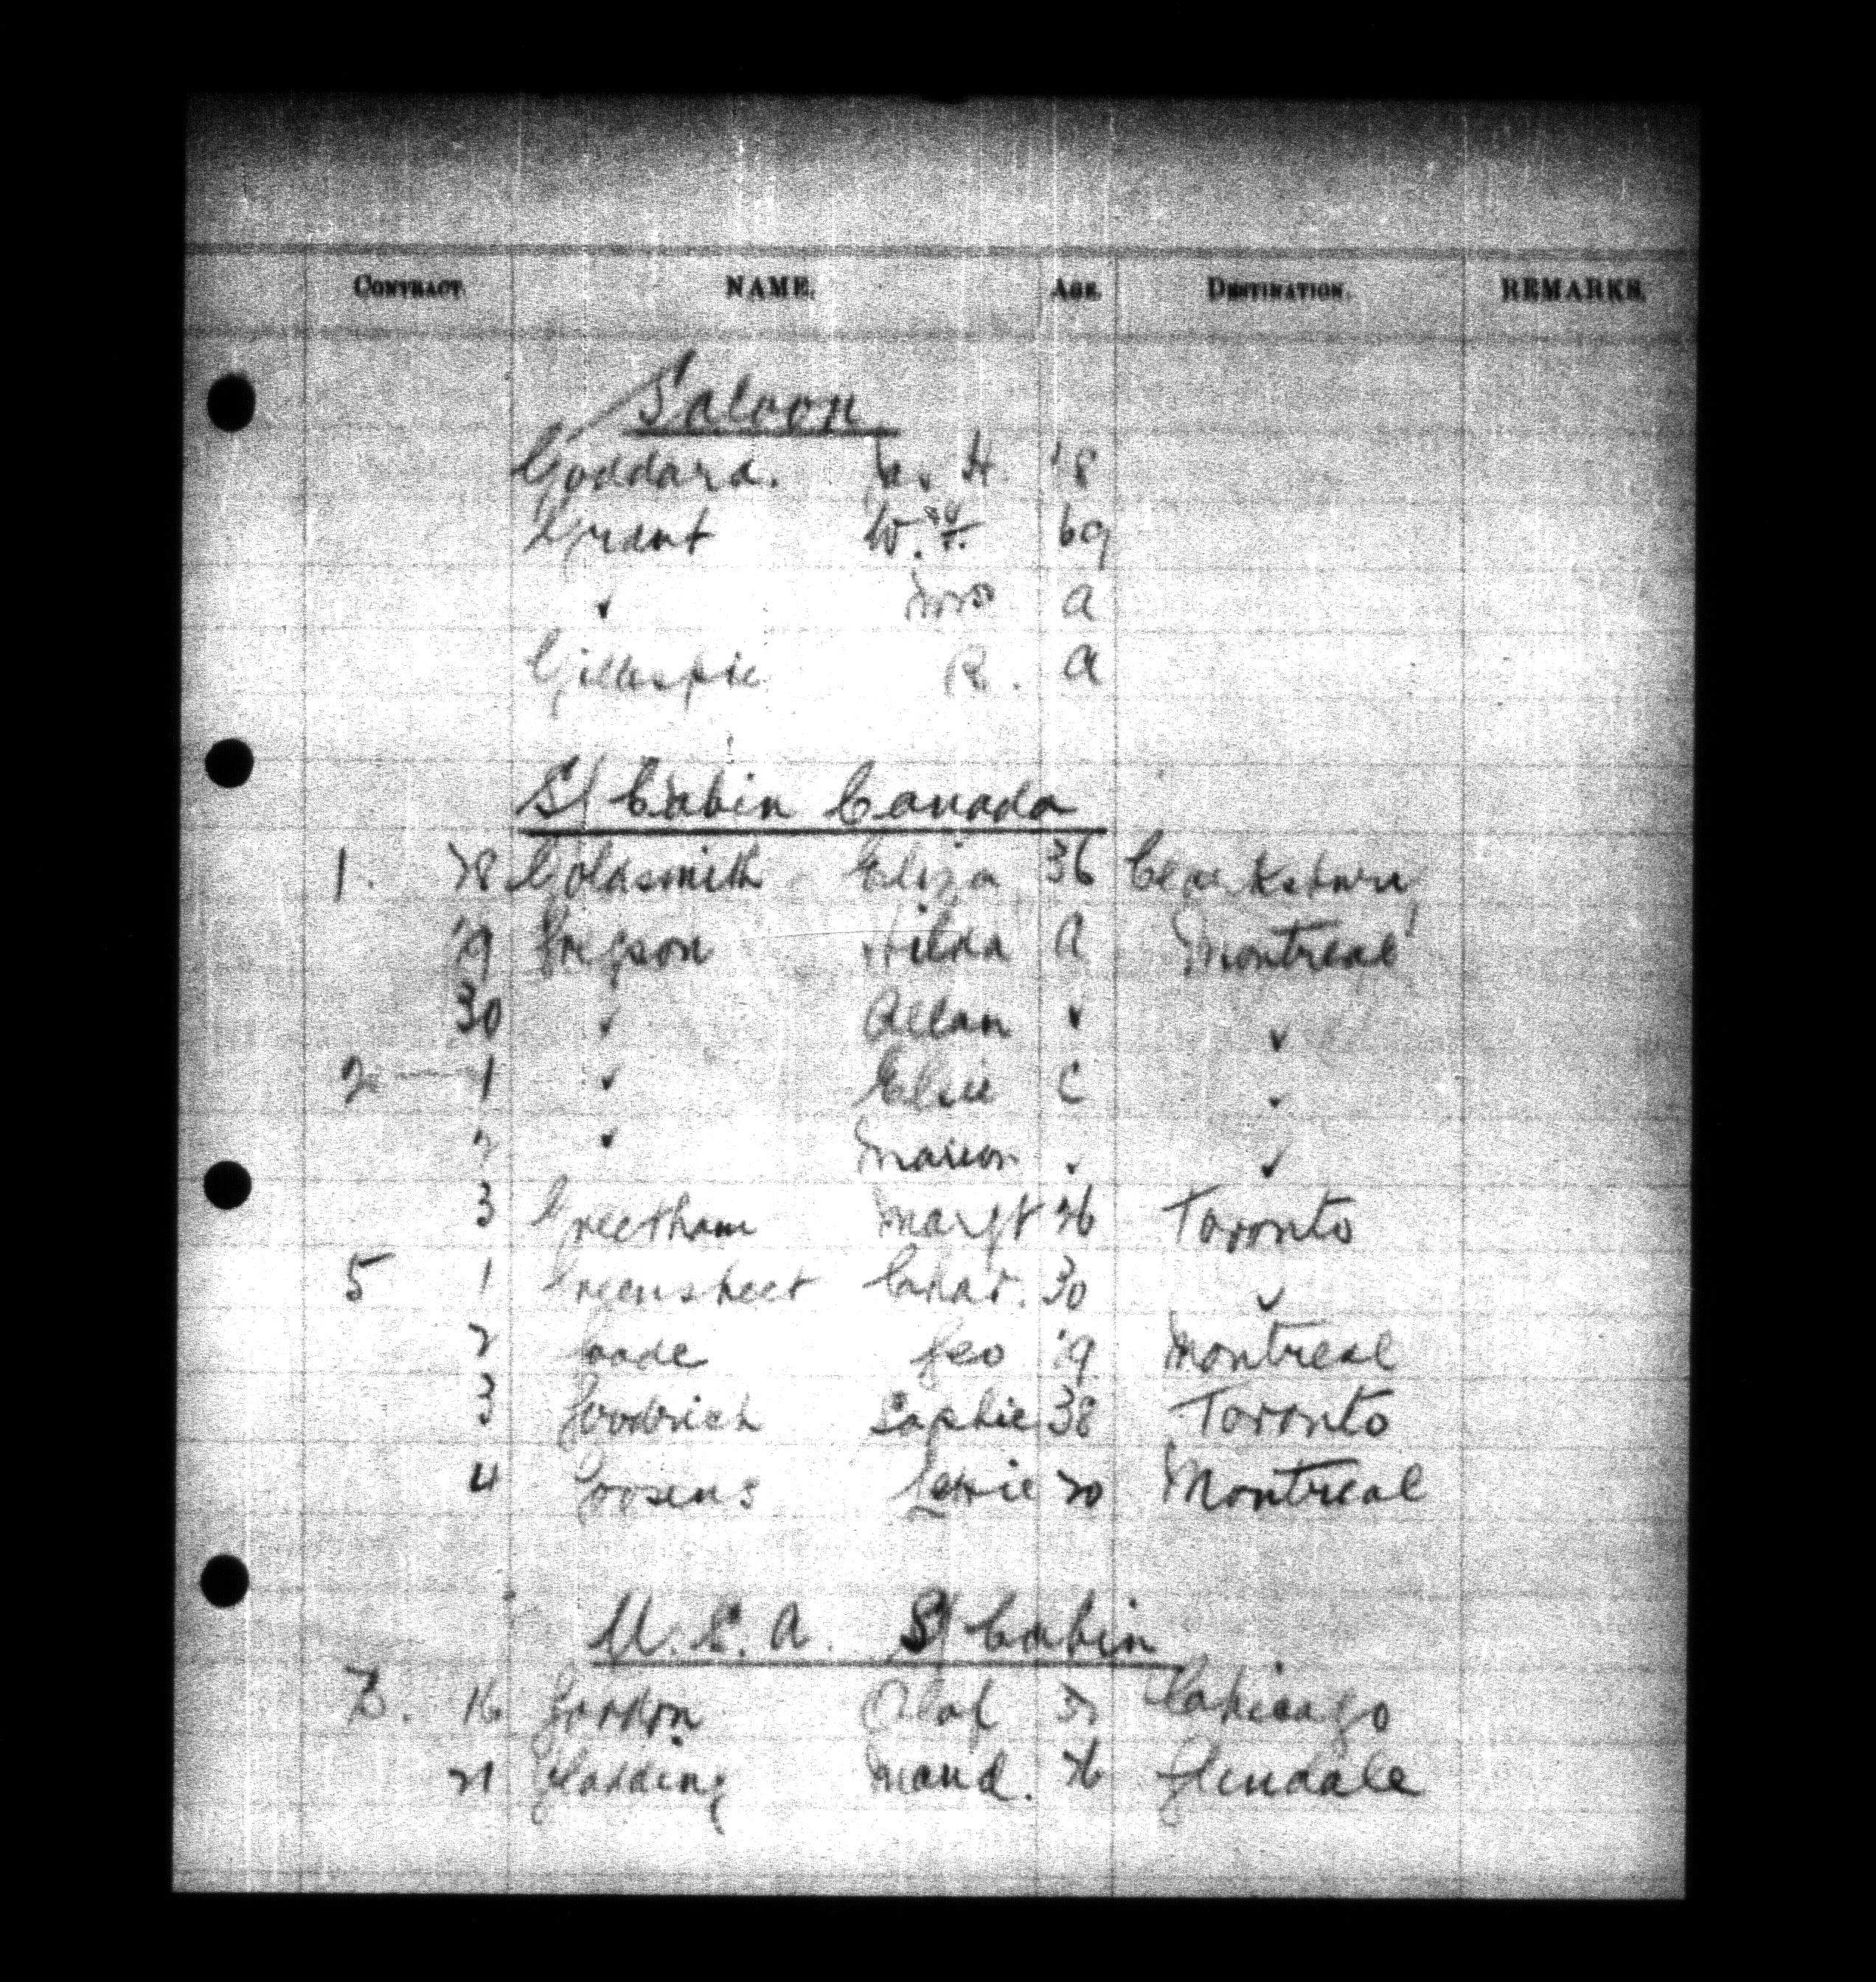 CONTRACT. NAME. AGE. DESTINATION. REMARKS.
Saloon
Goddard. H. 18
Grant W. 69
✓ Mrs a
Gillespie R. a
S/ Cabin Canada
1. 28 Goldsmith Eliza 36 Clarksburg
29 Gregson Hilda a Montreal
30 ✓ Allan ✓ ✓
2 — 1 ✓ Elsie c ✓
2 ✓ Marion ✓ ✓
3 Greetham Margt 26 Toronto
5 1 Greenstreet Char. 30 ✓
2 Goode Geo 19 Montreal
3 Goodrich Sophie 38 Toronto
4 Goosens 20 Montreal
U.S.A. S/ Cabin
16 Gordon Olof Chicago
21 Gladding Maud. 26 Glendale